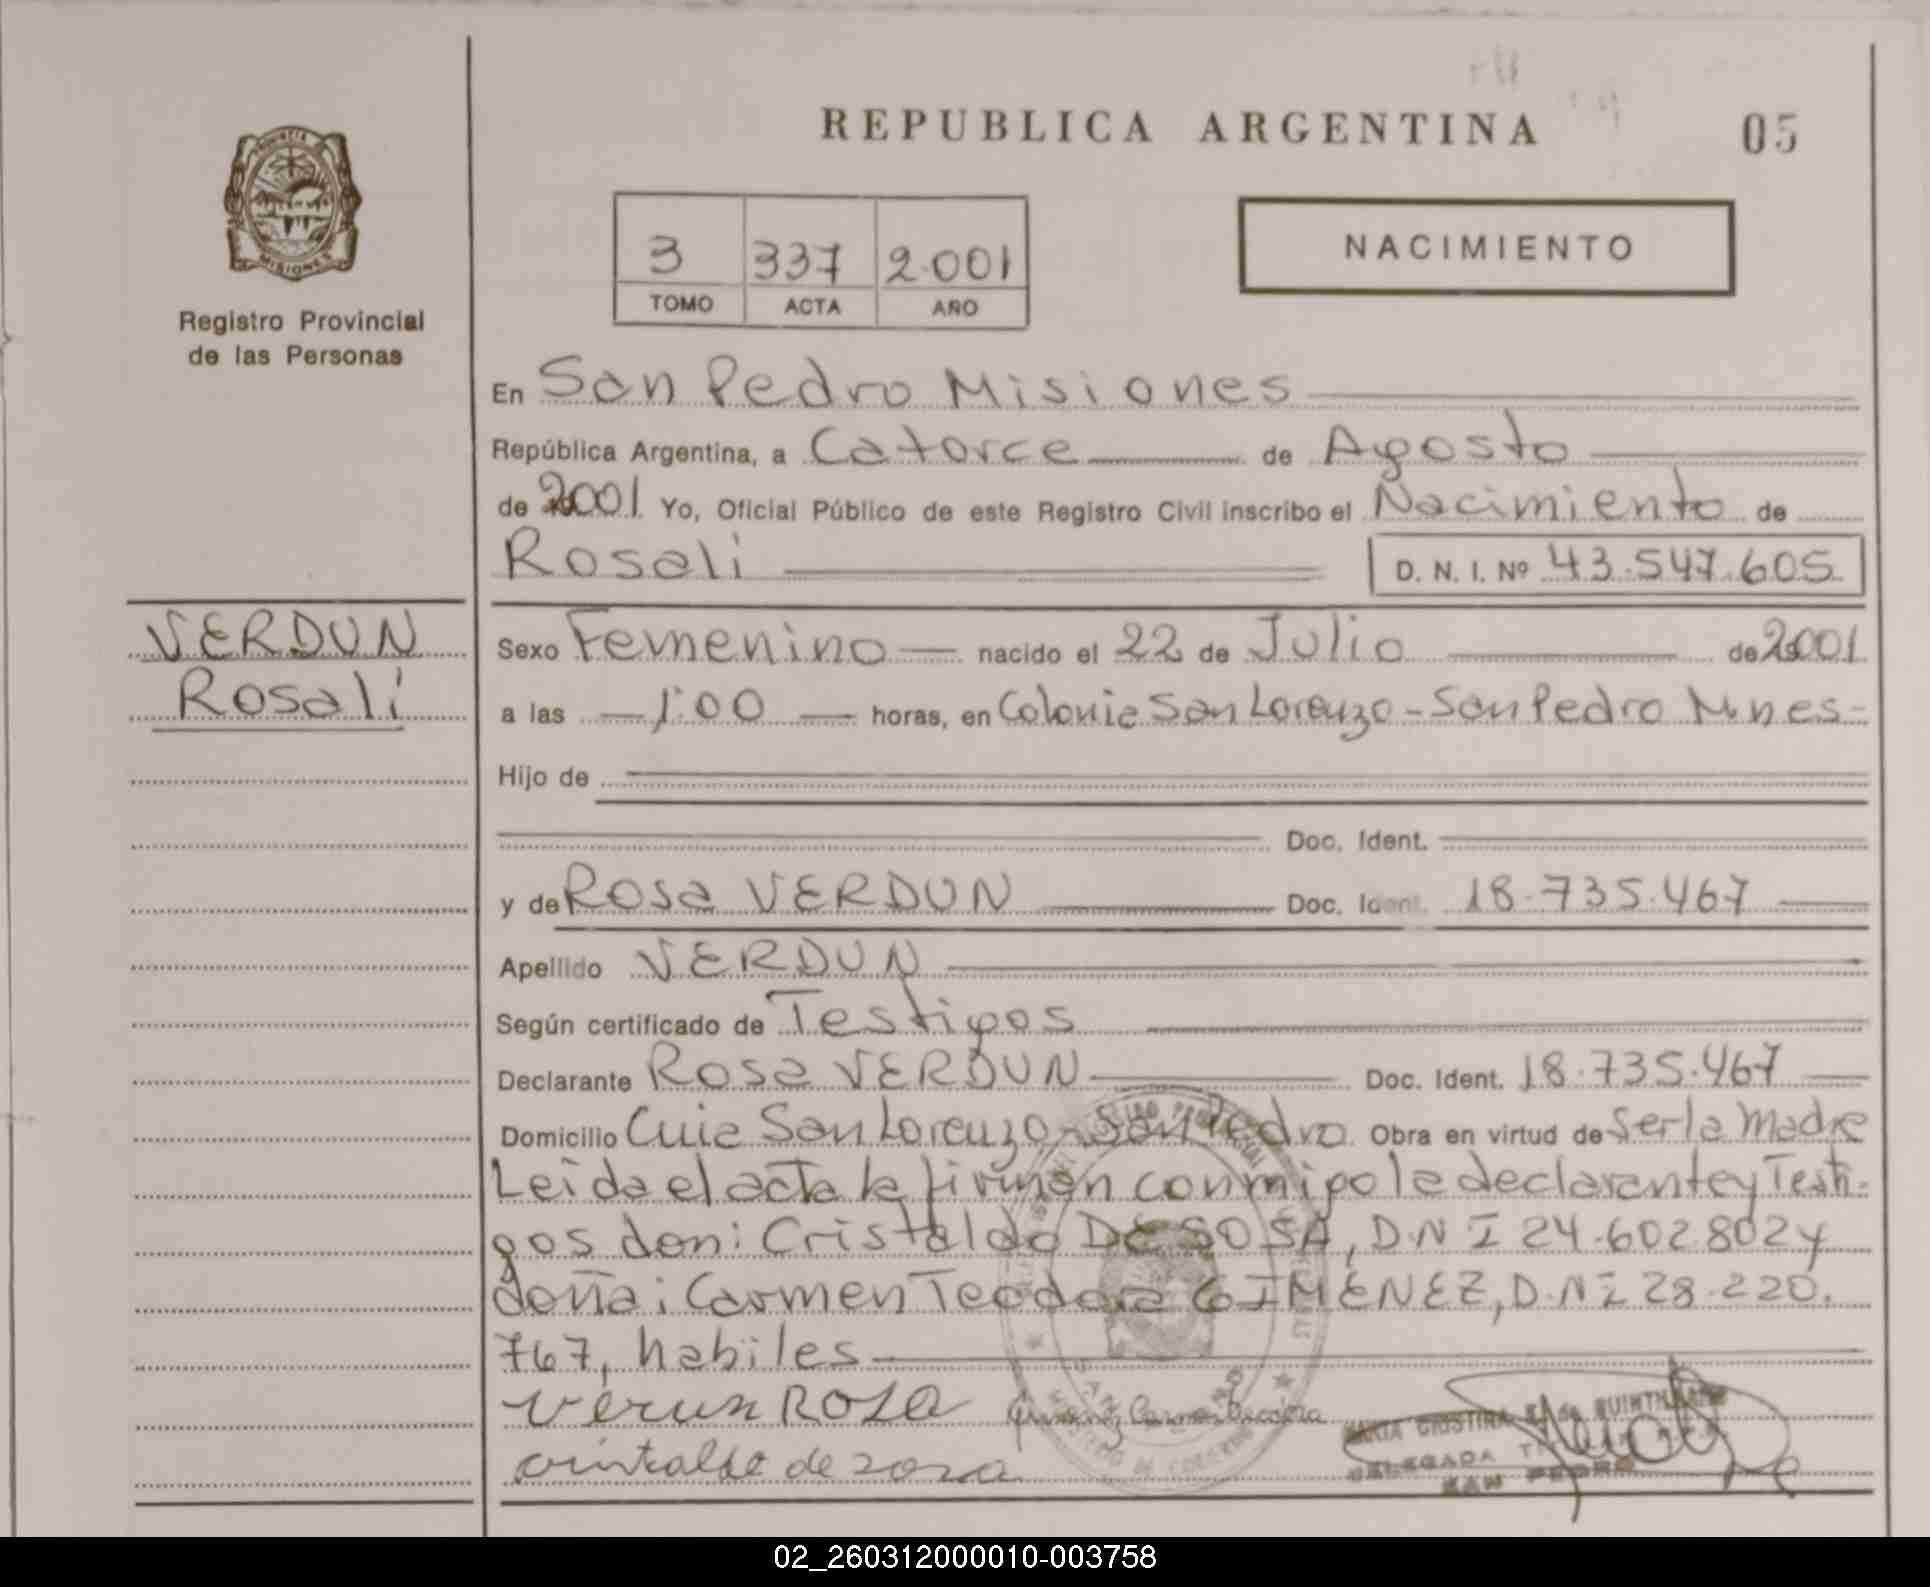 REPUBLICA ARGENTINA
05
PROVINCIA
MISIONES
Registro Provincial
de las Personas
3 337 2.001
TOMO ACTA AÑO
NACIMIENTO
En San Pedro Misiones
República Argentina, a Catorce de Agosto
de 2001 Yo, Oficial Público de este Registro Civil inscribo el Nacimiento de
Rosali D. N. I. Nº 43.547.605
VERDUN
Rosali
Sexo Femenino nacido el 22 de Julio de 2001
a las 1:00 horas, en Colonia San Lorenzo - San Pedro Mnes-
Hijo de
Doc. Ident.
y de Rosa VERDUN Doc. Ident. 18.735.467
Apellido VERDUN
Según certificado de Testigos
Declarante Rosa VERDUN Doc. Ident. 18.735.467
Domicilio Cnia San Lorenzo - San Pedro Obra en virtud de ser la Madre
Leida el acta la firman conmigo la declarante y Testi-
gos don: Cristaldo DE SOSA, D.N I 24.602.802 y
doña: Carmen Teodora GIMENEZ, D.N I 28.220.
767, habiles
verun ROSA
cristaldo de sosa
MARIA CRISTINA
DELEGADA
SAN PEDRO
02_260312000010-003758